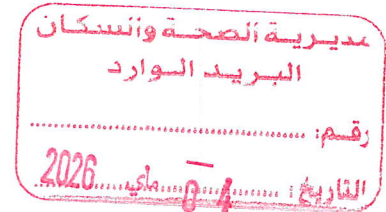 مديرية الصحة والسكان
البريد الوارد
رقم:
التاريخ: 04 ماي 2026